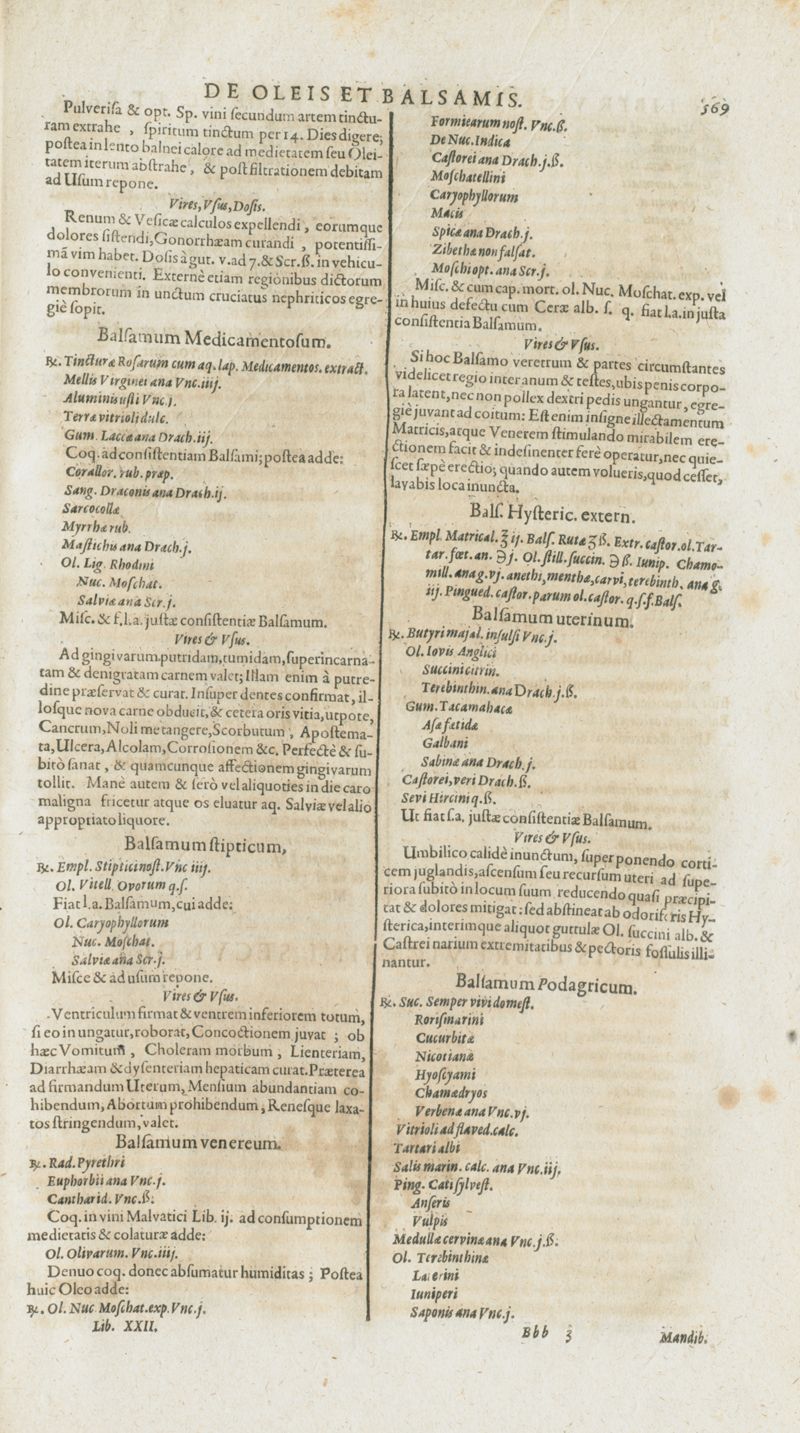 DE OLEIS ET BALSAMIS. 569
Pulverisa & opt. Sp. vini secundum artem tinctu-
ram extrahe , spiritum tinctum per 14. Dies digere;
postea in lento balnei calore ad medietatem seu Olei-
tatem iterum abstrahe , & post filtrationem debitam
ad Usum repone.
Vires, Vsus, Dosis.
Renum & Vesicæ calculos expellendi , eorumque
dolores sistendi, Gonorrhæam curandi , potentissi-
mã vim habet. Dosis à gut. v. ad 7. & Scr. ß. in vehicu-
lo convenienti. Externè etiam regionibus dictorum
membrorum in unctum cruciatus nephriticos egre-
giè sopit.
Balsamum Medicamentosum.
℞. Tincturæ Rosarum cum aq. lap. Medicamentos. extract.
Mellis Virginei ana Vnc. iiij.
Aluminis usti Vnc j.
Terræ vitrioli dulc.
Gum. Laccæ ana Drach. iij.
Coq. ad consistentiam Balsami; postea adde:
Corallor. rub. præp.
Sang. Draconis ana Drach. ij.
Sarcocollæ
Myrrhæ rub.
Mastichis ana Drach. j.
Ol. Lig. Rhodini
Nuc. Moschat.
Salviæ ana Scr. j.
Misc. & f. l. a. justæ consistentiæ Balsamum.
Vires & Vsus.
Ad gingivarum putridam, tumidam, superincarna-
tam & denigratam carnem valet; Illam enim à putre-
dine præservat & curat. Insuper dentes confirmat, il-
losque nova carne obducit, & cetera oris vitia, utpote,
Cancrum, Noli me tangere, Scorbutum , Apostema-
ta, Ulcera, Alcolam, Corrosionem &c. Perfectè & su-
bitò sanat , & quamcunque affectionem gingivarum
tollit. Manè autem & serò vel aliquoties in die caro
maligna fricetur atque os eluatur aq. Salviæ vel alio
appropriato liquore.
Balsamum stipticum,
℞. Empl. Stiptici nost. Vnc iiij.
Ol. Vitell. Ovorum q. s.
Fiat l. a. Balsamum, cui adde:
Ol. Caryophyllorum
Nuc. Moschat.
Salviæ ana Scr. j.
Misce & ad usum repone.
Vires & Vsus.
Ventriculum firmat & ventrem inferiorem totum,
si eo in ungatur, roborat, Concoctionem juvat ; ob
hæc Vomitum , Choleram morbum , Lienteriam,
Diarrhæam & dysenteriam hepaticam curat. Præterea
ad firmandum Uterum, Mensium abundantiam co-
hibendum, Abortum prohibendum, Renesque laxa-
tos stringendum, valet.
Balsamum venereum.
℞. Rad. Pyrethri
Euphorbii ana Vnc. j.
Cantharid. Vnc. ß.
Coq. in vini Malvatici Lib. ij. ad consumptionem
medietatis & colaturæ adde:
Ol. Olivarum. Vnc. iiij.
Denuo coq. donec absumatur humiditas ; Postea
huic Oleo adde:
℞. Ol. Nuc Moschat. exp. Vnc. j.
Lib. XXII.
Formicarum nost. Vnc. ß.
De Nuc. Indica
Castorei ana Drach. j. ß.
Moschatellini
Caryophyllorum
Macis
Spicæ ana Drach. j.
Zibethæ non falsat.
Moschi opt. ana Scr. j.
Misc. & cum cap. mort. ol. Nuc. Moschat. exp. vel
in huius defectu cum Ceræ alb. s. q. fiat l. a. in justa
consistentia Balsamum.
Vires & Vsus.
Si hoc Balsamo veretrum & partes circumstantes
videlicet regio inter anum & testes, ubi penis corpo-
ra latent, nec non pollex dextri pedis ungantur, egre-
giè juvant ad coitum: Est enim insigne illectamentum
Matricis, atque Venerem stimulando mirabilem ere-
ctionem facit & indesinenter ferè operatur, nec quie-
scet sæpè erectio; quando autem volueris, quod cesset,
lavabis loca inuncta.
Bals. Hysteric. extern.
℞. Empl. Matrical. ℥ ij. Bals. Rutæ ʒ ß. Extr. castor. ol. Tar-
tar. fœt. an. ℈ j. Ol. still. succin. ℈ ß. Iunip. Chamo-
mill. ana g. vj. anethi, menthæ, carvi, terebinth. ana g.
iij. Pingued. castor. parum ol. castor. q. s. f. Bals.
Balsamum uterinum.
℞. Butyri majal. insulsi Vnc. j.
Ol. Iovis Anglici
Succini citrin.
Terebinthin. ana Drach. j. ß.
Gum. Tacamahacæ
Asæ fætidæ
Galbani
Sabinæ ana Drach. j.
Castorei, veri Drach. ß.
Sevi Hircini q. ß.
Ut fiat s. a. justæ consistentiæ Balsamum.
Vires & Vsus.
Umbilico calidè inunctum, super ponendo corti-
cem juglandis, ascensum seu recursum uteri ad supe-
riora subitò in locum suum reducendo quasi præcipi-
tat & dolores mitigat: sed abstineat ab odoriferis Hy-
sterica, interimque aliquot guttulæ Ol. succini alb. &
Castrei narium extremitatibus & pectoris fossulis illi-
nantur.
Balsamum Podagricum.
℞. Suc. Semper vivi domest.
Rorismarini
Cucurbitæ
Nicotianæ
Hyoscyami
Chamædryos
Verbenæ ana Vnc. vj.
Vitrioli ad flaved. calc.
Tartari albi
Salis marin. calc. ana Vnc. iij.
Ping. Cati sylvest.
Anseris
Vulpis
Medullæ cervinæ ana Vnc. j. ß.
Ol. Terebinthinæ
Laterini
Iuniperi
Saponis ana Vnc. j.
Bbb 3 Mandib.